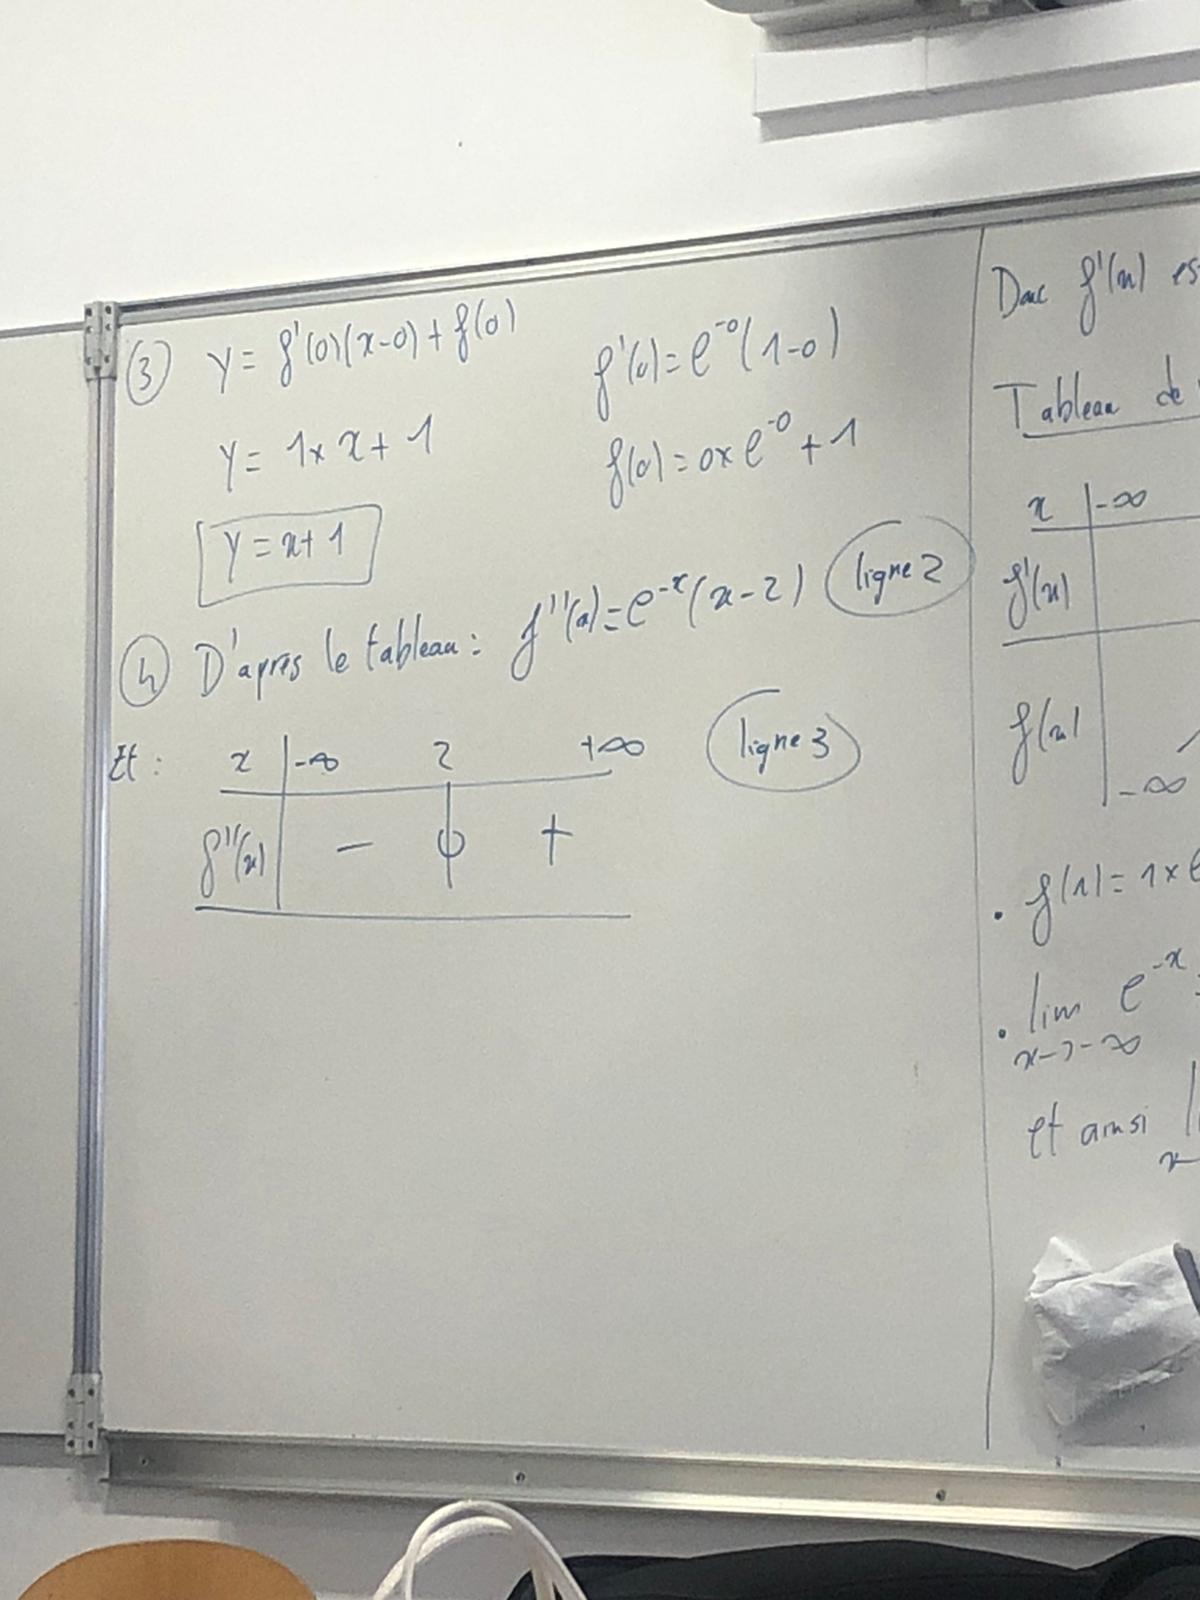 ③ y = f'(0)(x-0) + f(0)
f'(0) = e^-0 (1-0)
y = 1 × x + 1
f(0) = 0 × e^-0 + 1
y = x + 1
④ D'après le tableau : f''(x) = e^-x (x-2) ligne 2
Et : x | -∞ 2 +∞ ligne 3
f''(x) | - 0 +
Donc f'(x) es
Tableau de
x | -∞
f'(x)
f(x)
-∞
• f(1) = 1 × e
• lim e^-x =
x→-∞
et ainsi l
x